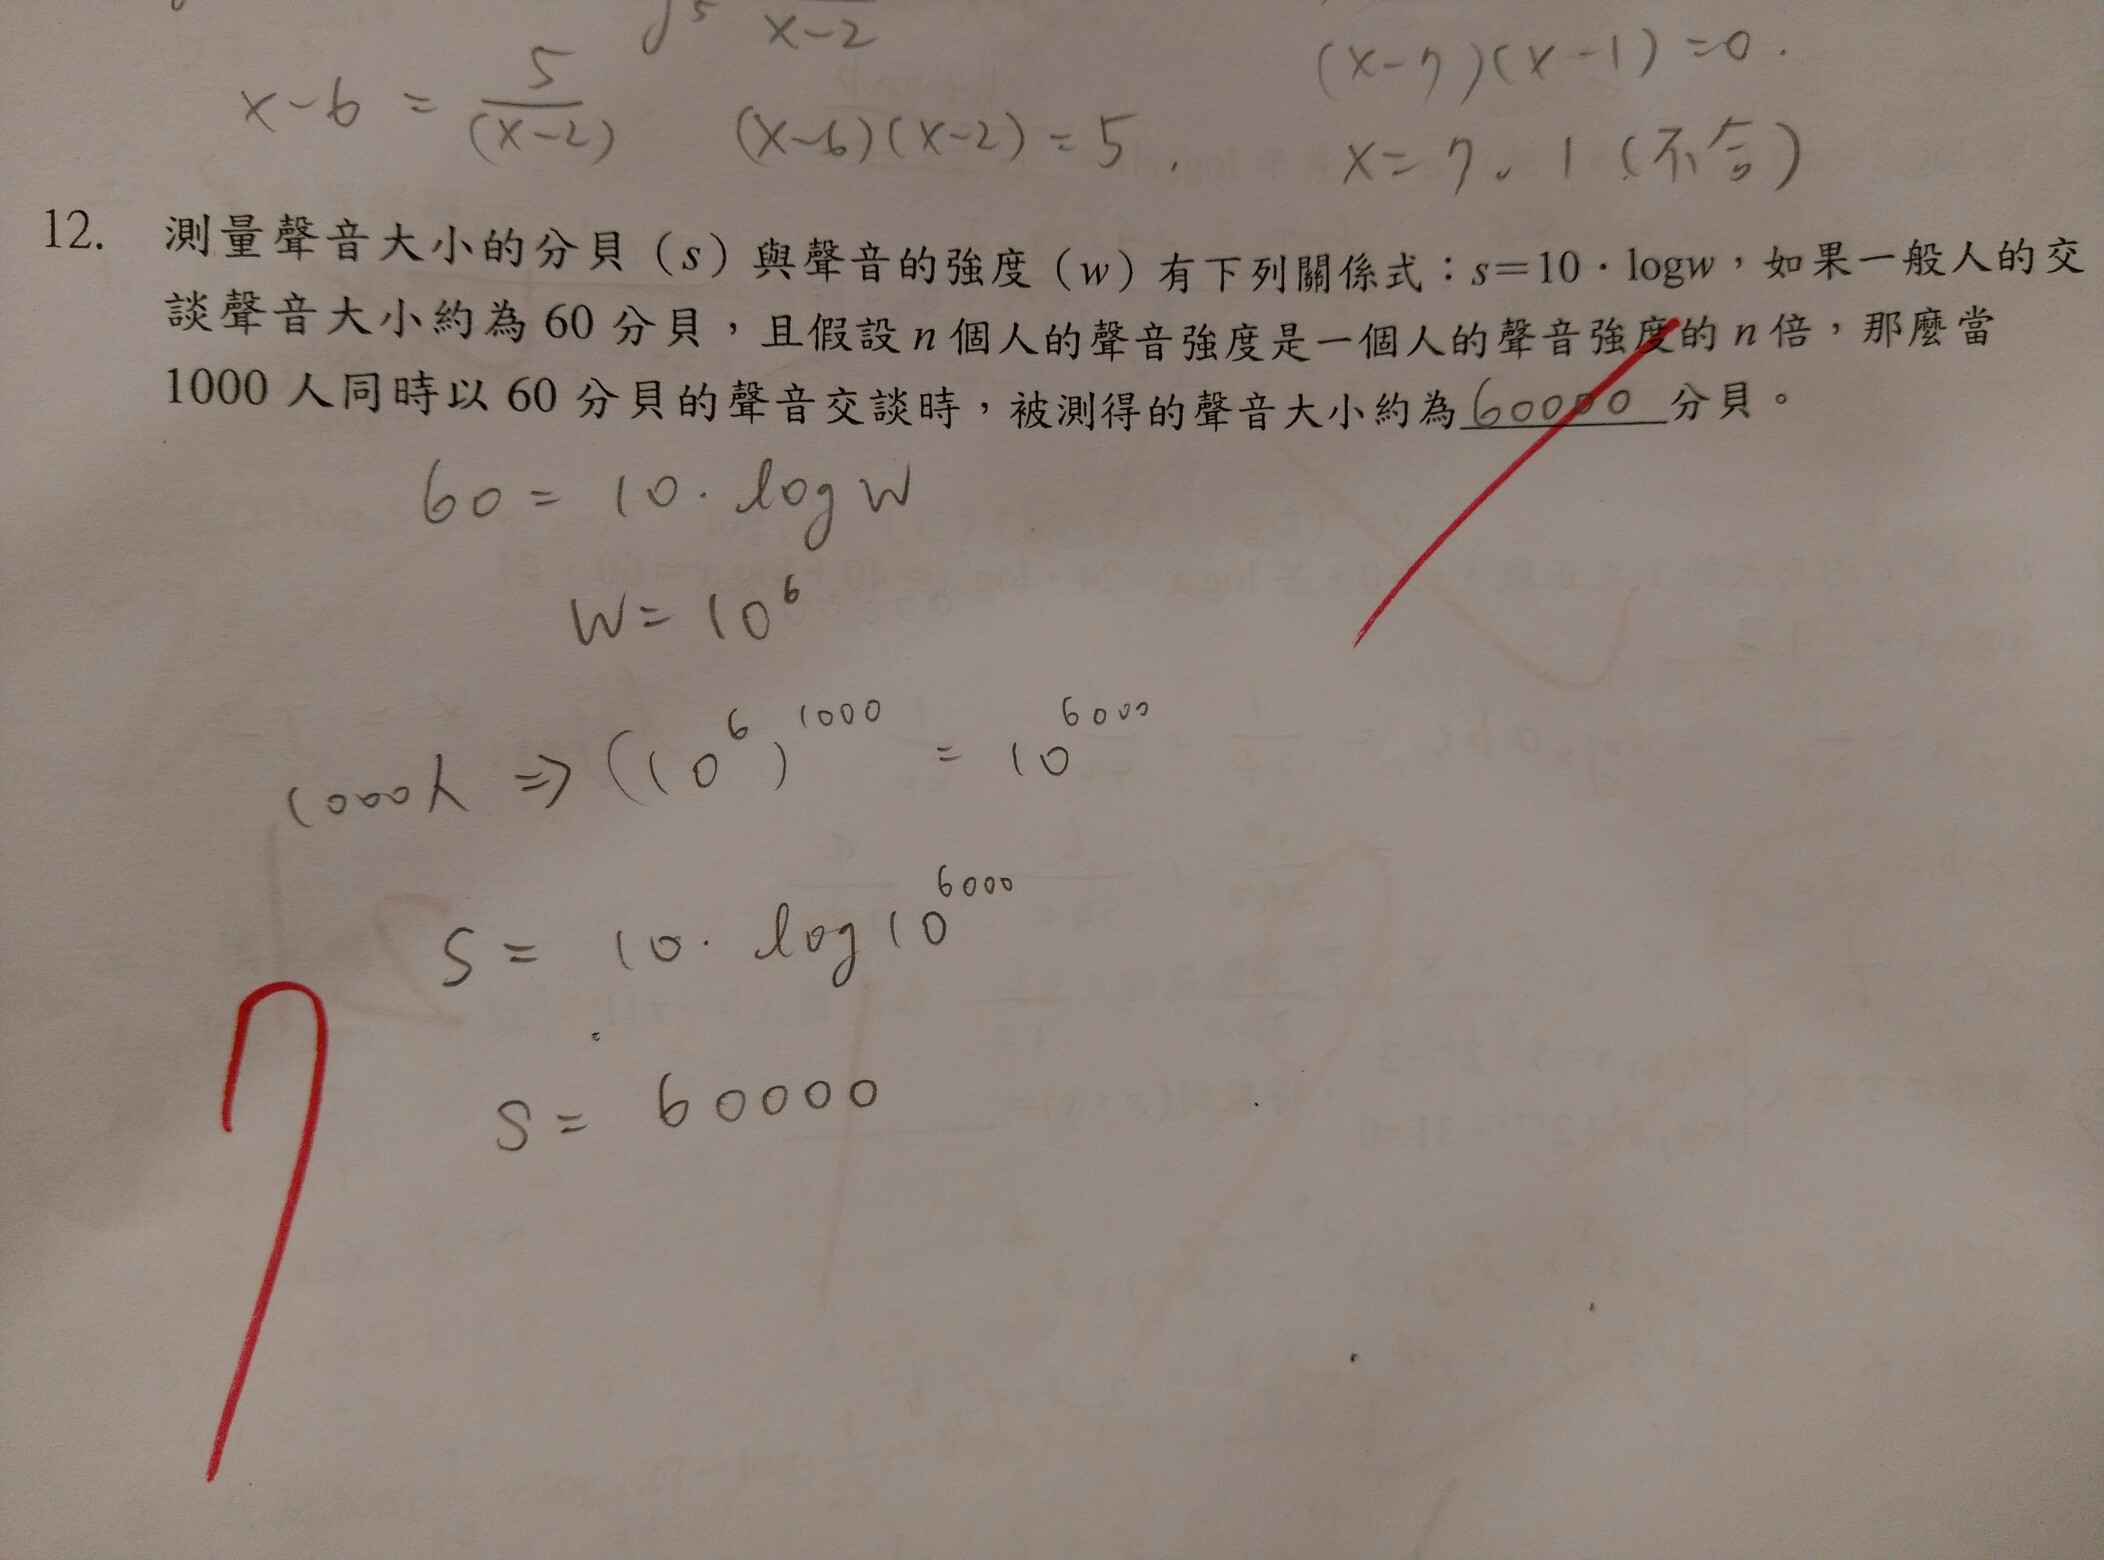 x-2
x-6 = 5/(x-2) (x-6)(x-2)=5.
(x-7)(x-1)=0.
x=7、1(不合)
12. 測量聲音大小的分貝(s)與聲音的強度(w)有下列關係式:s=10·logw,如果一般人的交
談聲音大小約為60分貝,且假設n個人的聲音強度是一個人的聲音強度的n倍,那麼當
1000人同時以60分貝的聲音交談時,被測得的聲音大小約為60000分貝。
60=10·logw
w=10⁶
1000人⇒(10⁶)¹⁰⁰⁰=10⁶⁰⁰⁰
s=10·log10⁶⁰⁰⁰
s=60000